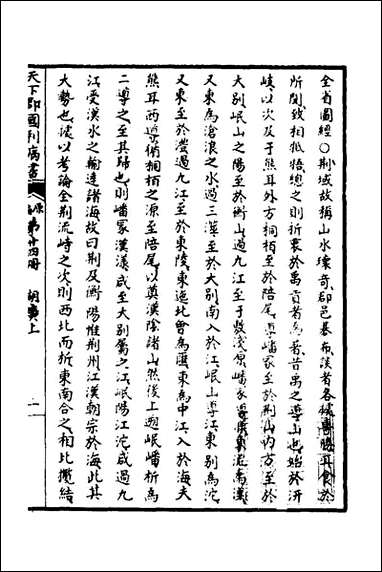 全省圖經○荆域故稱山水瓌奇郡邑棊布談者各據
所聞致相牴牾總之則折衷於禹貢者為著昔禹之導山也始於汧
岐以次及于熊耳外方桐栢至於陪尾導嶓冡至於荆山内方至於
大别岷山之陽至於衡山過九江至于敷淺原嶓冡導漾東流為漢
又東為滄浪之水過三澨至於大别南入於江岷山導江東别為沱
又東至於澧過九江至於東陵東迤北會為匯東為中江入於海夫
熊耳西導循桐栢之源至陪尾以奠漢陰諸山然後上遡岷嶓析為
二導之至其歸也則嶓冡漢漾咸至大别屬之江岷陽江沱咸過九
江受漢水之輸達諸海故曰荆及衡陽惟荆州江漢朝宗於海此其
大勢也據以考論全荆流峙之次則西北而折東南合之相比攬結
天下郡國利病書 原 第廿四冊 湖廣上 一